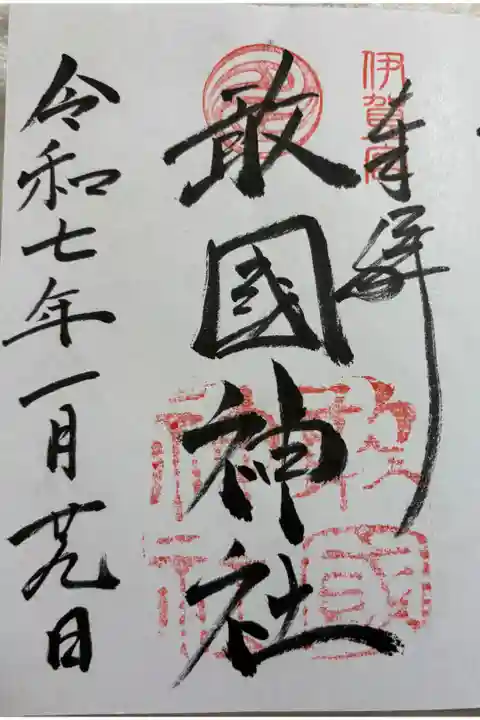 伊賀
奉拝
敢國神社
敢國
神社
令和七年一月廿九日